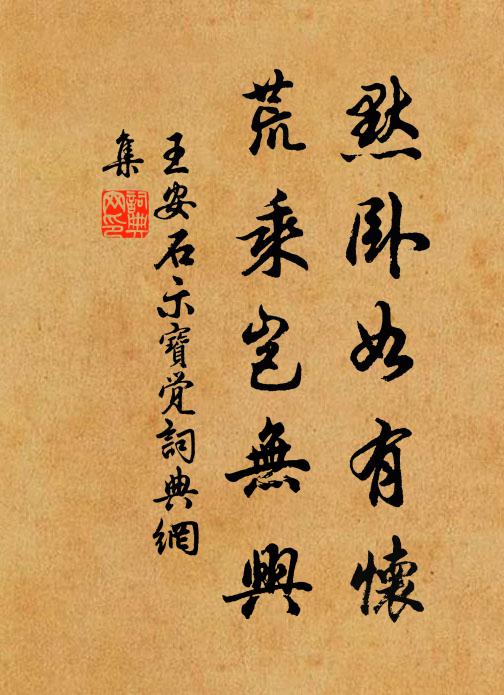 默卧如有懷
荒乘岂無興
王安石示寶觉詞典網
集
詞典
网印